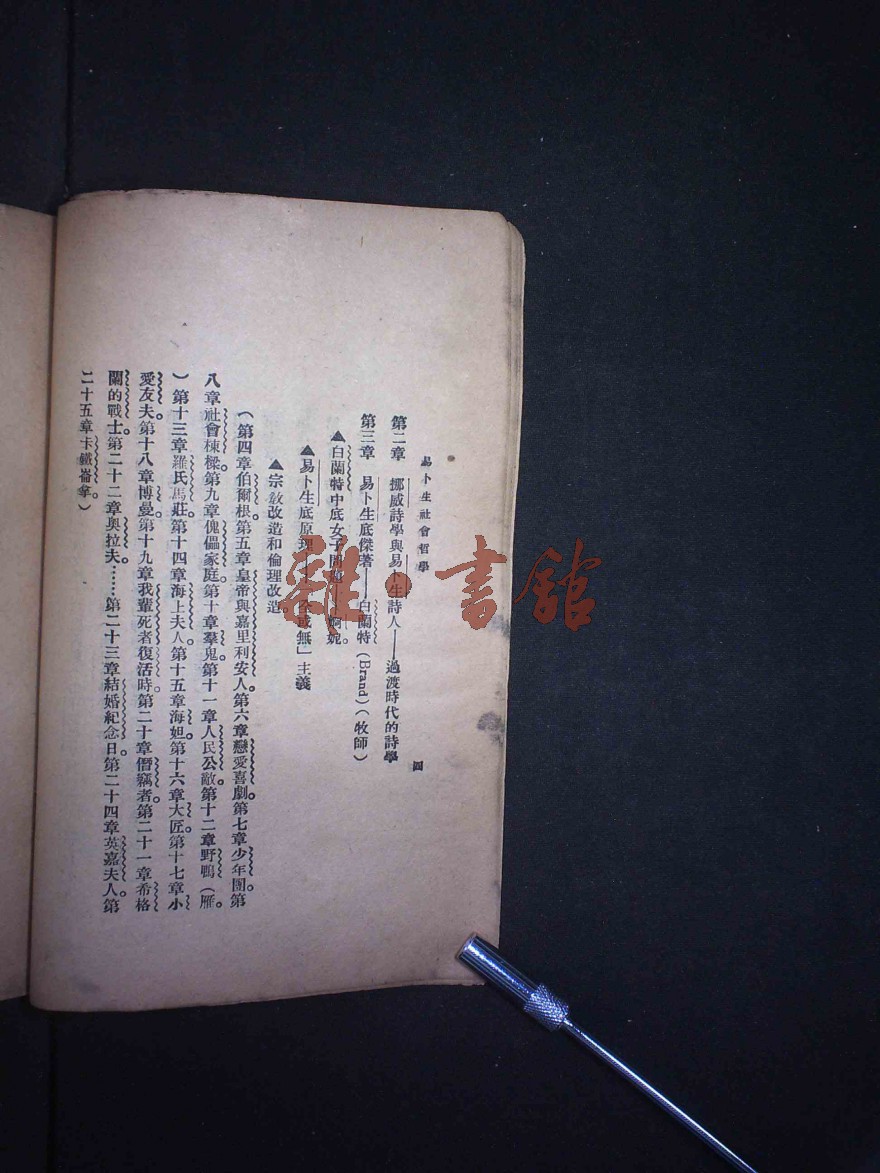 易卜生社會哲學
四
第二章 挪威詩學與易卜生詩人——過渡時代的詩學
第三章 易卜生底傑著——白蘭特(Brand)(牧師)
▲白蘭特中底女子問題——婀妮。
▲易卜生底原理——或無」主義
▲宗教改造和倫理改造。
(第四章伯爾根。第五章皇帝與嘉里利安人。第六章戀愛喜劇。第七章少年團。第
八章社會棟樑。第九章傀儡家庭。第十章羣鬼。第十一章人民公敵。第十二章野鴨(雁。
)第十三章羅氏馬莊。第十四章海上夫人。第十五章海妲。第十六章大匠。第十七章小
愛友夫。第十八章博曼。第十九章我輩死者復活時。第二十章僭竊者。第二十一章希格
蘭的戰士。第二十二章奧拉夫……第二十三章結婚紀念日。第二十四章英嘉夫人。第
二十五章卡鐵崙拿。)
雜·書館